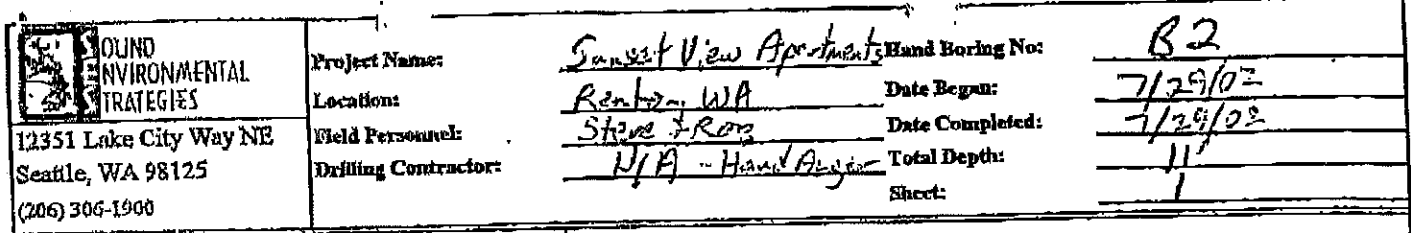 SOUND
ENVIRONMENTAL
STRATEGIES
12351 Lake City Way NE
Seattle, WA 98125
(206) 306-1900
Project Name: Sunset View Apartments
Location: Renton, WA
Field Personnel: Steve & Rob
Drilling Contractor: N/A - Hand Auger
Hand Boring No: B2
Date Began: 7/29/02
Date Completed: 7/29/02
Total Depth: 11'
Sheet: 1